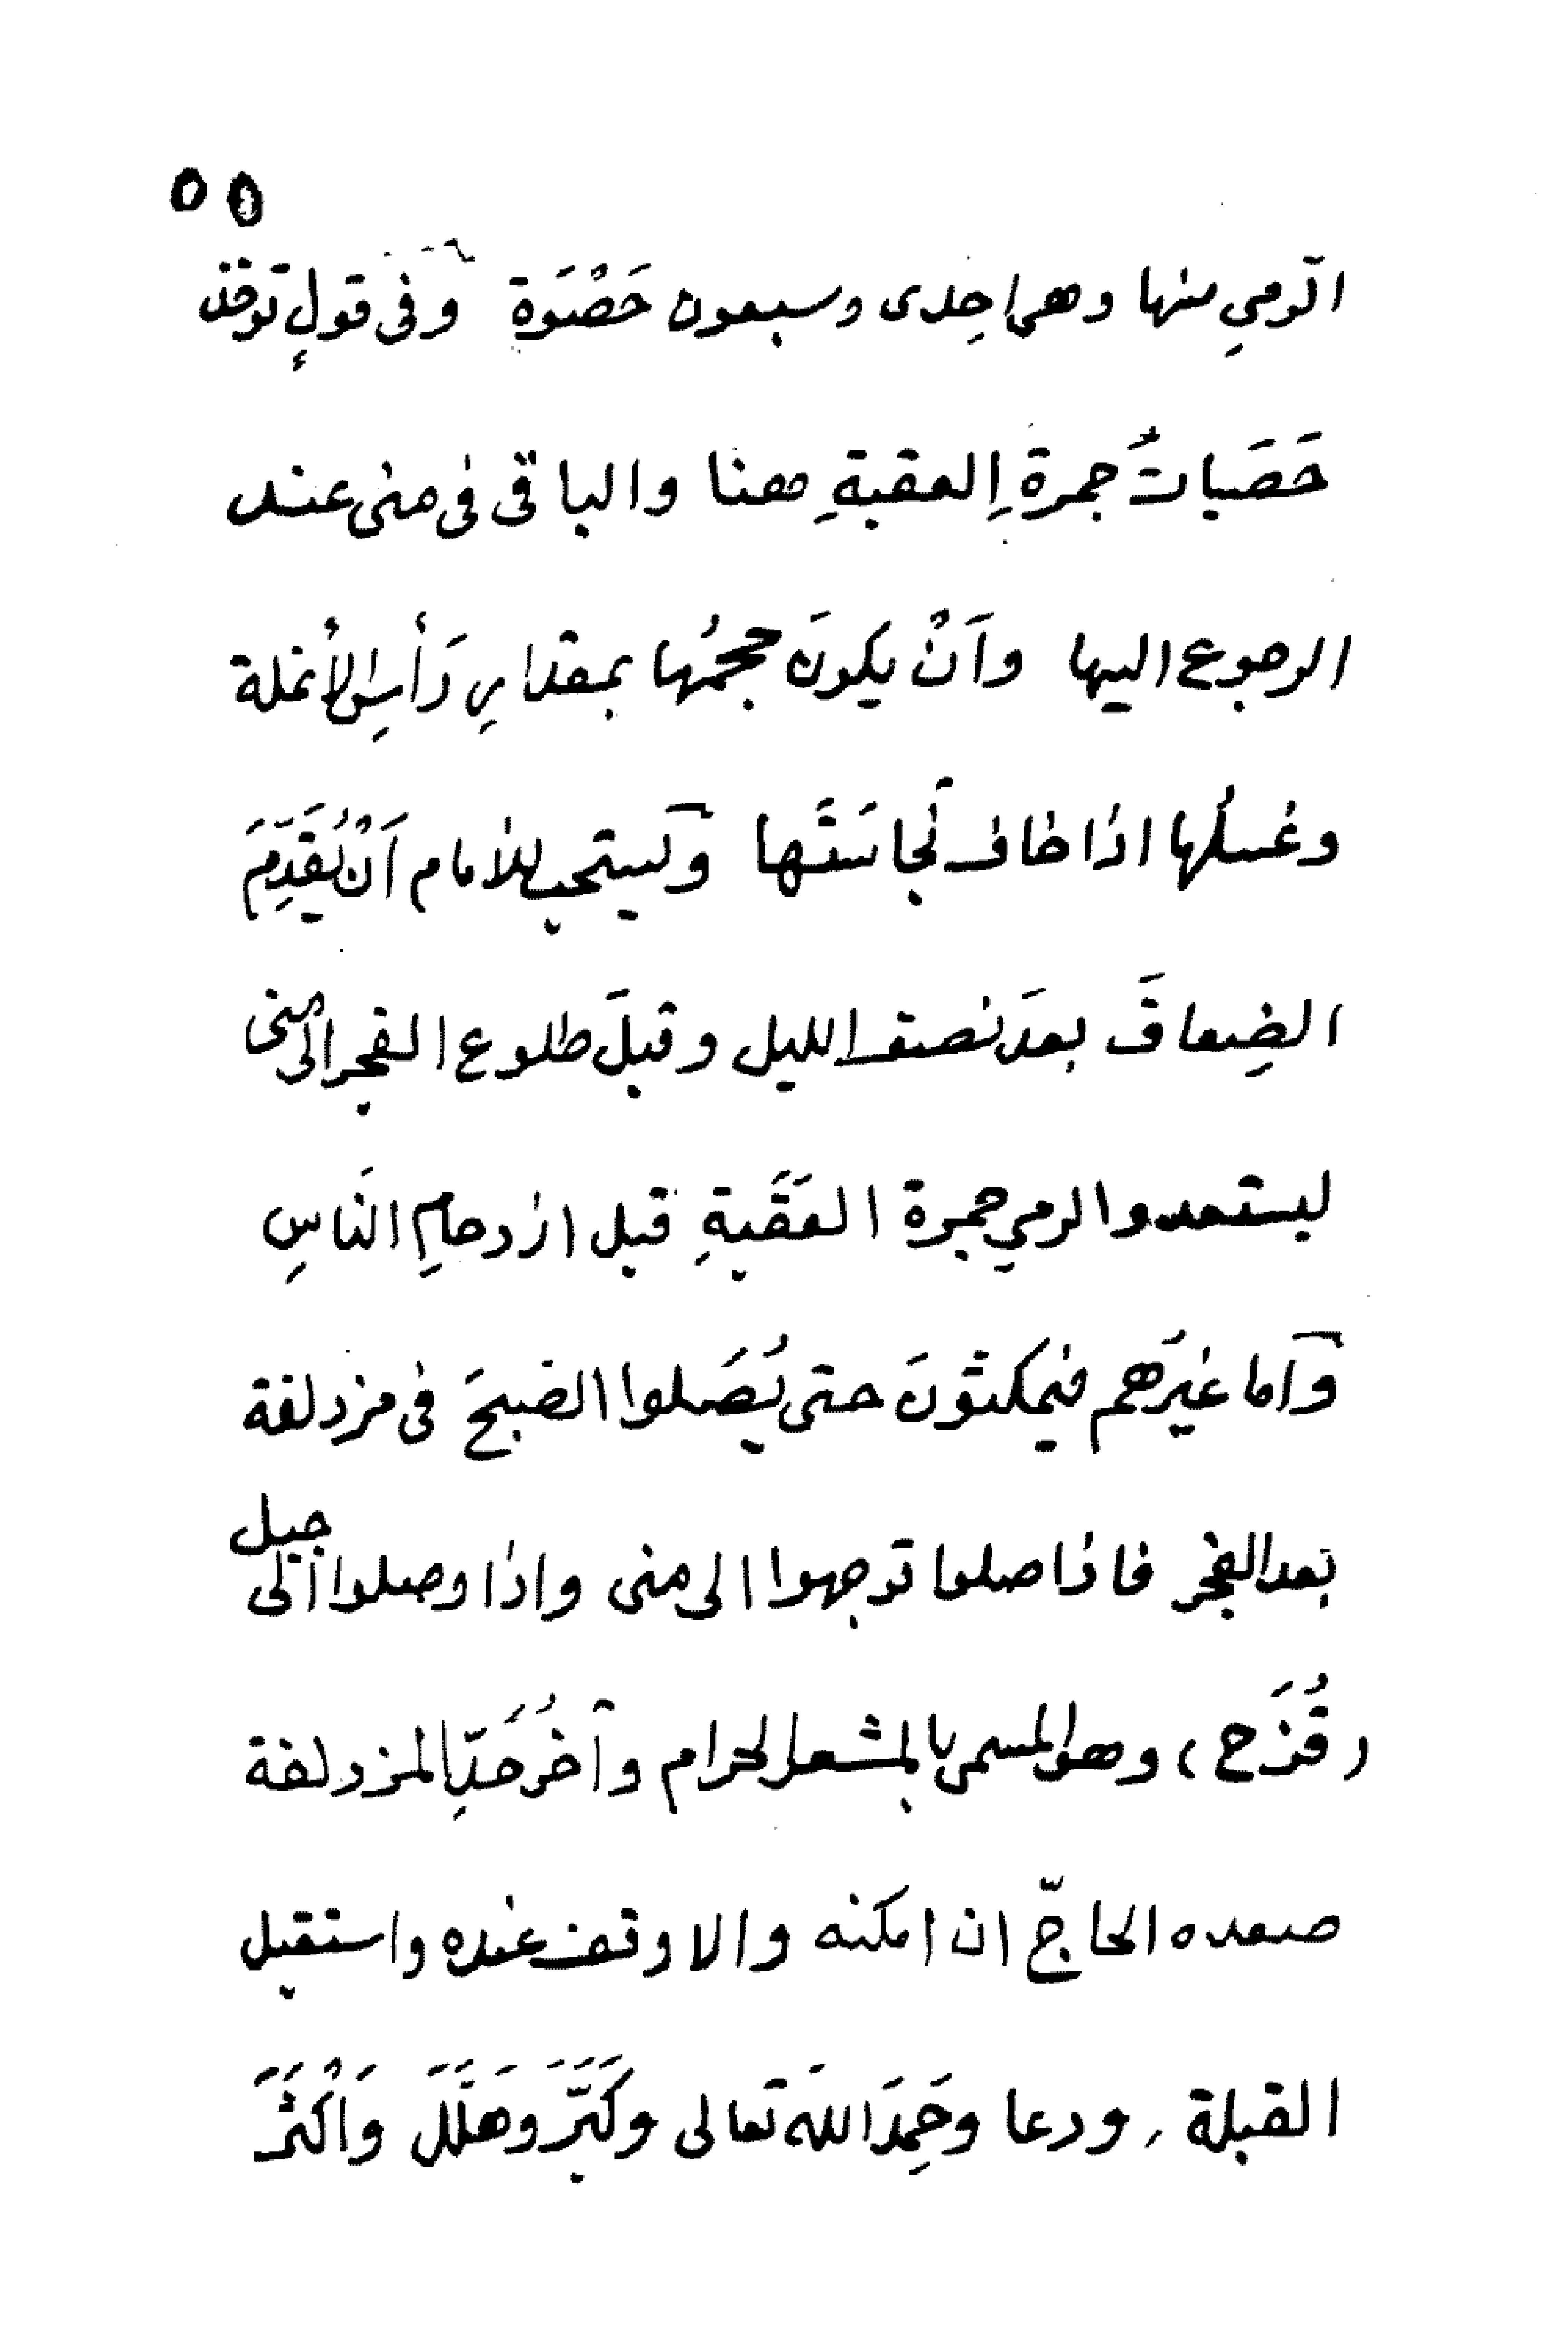 ٥٥
الرّمي منها وهى احِدى وسبعون حَصْوَة وَفى قولٍ تؤخذ
حَصَياتُ جمرةِ العقبةِ معنا والباقى فى منى عند
الرجوع اليها وَاَنْ يكونَ حجمُها بمقدارِ رَأسِ الأنملة
وغُسلُها اذا خاف نَجاسَتَها وَيستحب للامام اَنْ يُقَدِّمَ
الضِعافَ بعدَ نصف الليل وقبلَ طلوع الفجر الى منى
ليستعدوا لرمي جمرة العَقَبةِ قبل ازدحامِ الناسِ
وَاَما غيرُهم فيمكثونَ حتى يُصَلوا الصبحَ فى مزدلفة
بعد الفجر فاذا صلوا توجهوا الى منى واذا وصلوا الى جبل
(قُزَح) وهو المسمى بالمشعر الحرام وآخرُ حَدِّ المزدلفة
صعده الحاجّ ان امكنه والا وقف عنده واستقبل
القبلة، ودعا وحَمِدَ اللهَ تعالى وَكَبَّرَ وهَلَّلَ وَاَكْثَرَ